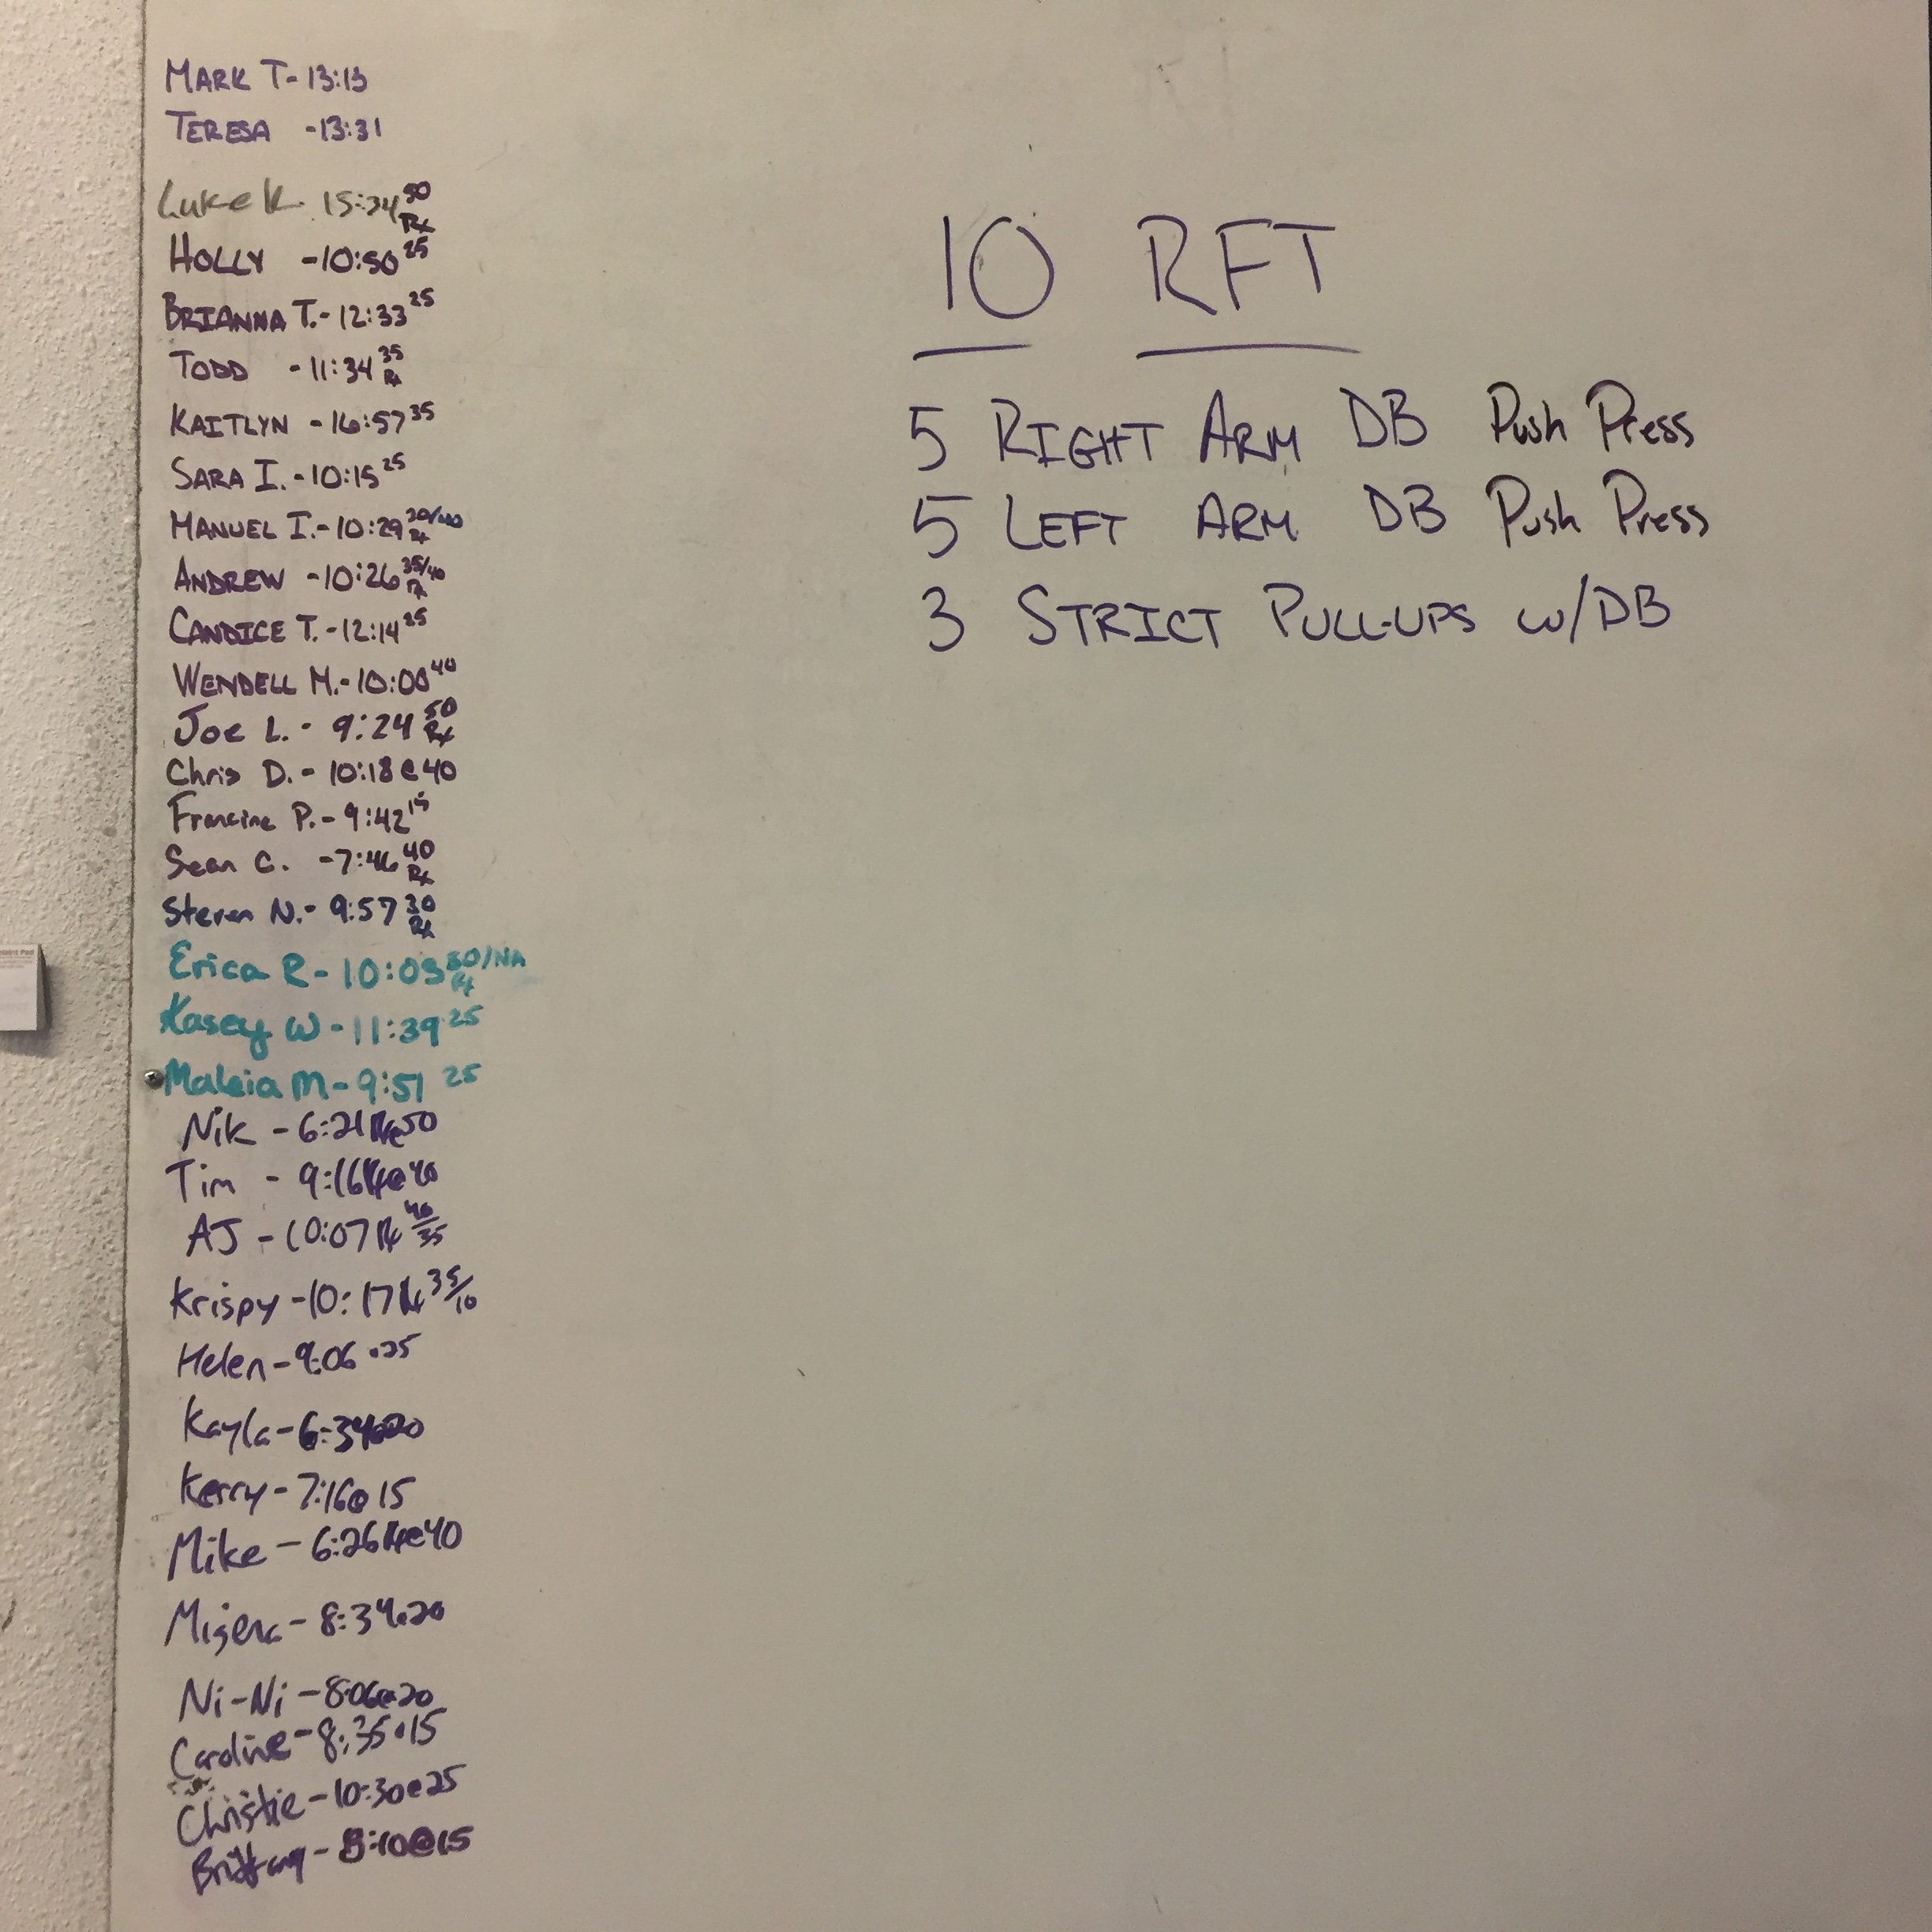 MARK T- 13:13
TERESA -13:31
Luke K. 15:24 50 Rx
HOLLY -10:50 25
BRIANNA T.- 12:33 25
TODD -11:34 35 Rx
KAITLYN -16:57 35
SARA I. -10:15 25
MANUEL I.- 10:29 Rx
ANDREW -10:26 35/40 Rx
CANDICE T. -12:14 25
WENDELL M.- 10:00 40
Joe L. - 9:24 50 Rx
Chris D. - 10:18 @ 40
Francine P. - 9:42 15
Sean C. -7:46 40 Rx
Steven N.- 9:57 30 Rx
Erica R- 10:03 /NA Rx
Kasey W -11:39 25
Maleia M- 9:51 25
Nik - 6:21 Rx@50
Tim - 9:16 Rx@40
AJ - 10:07 Rx 40/35
Krispy -10:17 Rx 35/10
Helen -9:06 @25
Kayla -6:34@20
Kerry - 7:16@ 15
Mike - 6:26 Rx@40
8:34@20
Ni-Ni -8:06@20
Caroline -8:35@15
Christie -10:30@25
Brittany - 8:10@15
10 RFT
5 RIGHT ARM DB Push Press
5 LEFT ARM DB Push Press
3 STRICT PULL-UPS w/DB